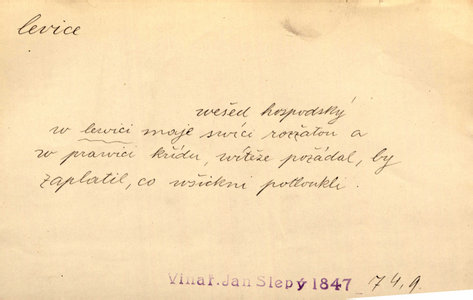 levice
wešed hospodský
w lewici maje swíci rozžatou a
w prawici křídu, wítěze požádal, by
zaplatil, co wšickni potloukli.
Vinař. Jan Slepý 1847 74,9.